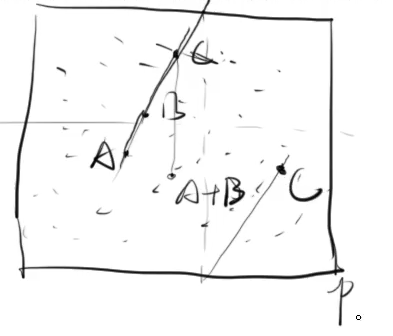 C
B
A
A+B
C
p
。